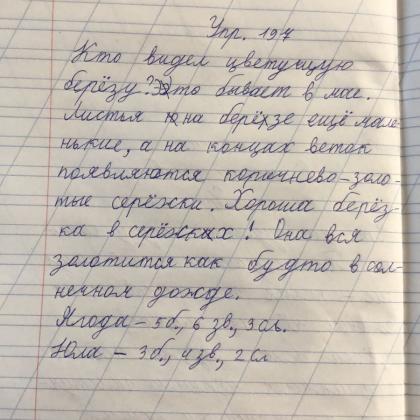 Упр. 197
Кто видел цветущую
берёзу? Это бывает в мае.
Листья на берёзе ещё мале-
нькие, а на концах веток
появляются коричнево-золо-
тые серёжки. Хороша берёз-
ка в серёжках! Она вся
золотится как будто в сол-
нечном дожде.
Ягода – 5б., 6 зв., 3 сл.
Юла – 3б., 4 зв., 2 сл